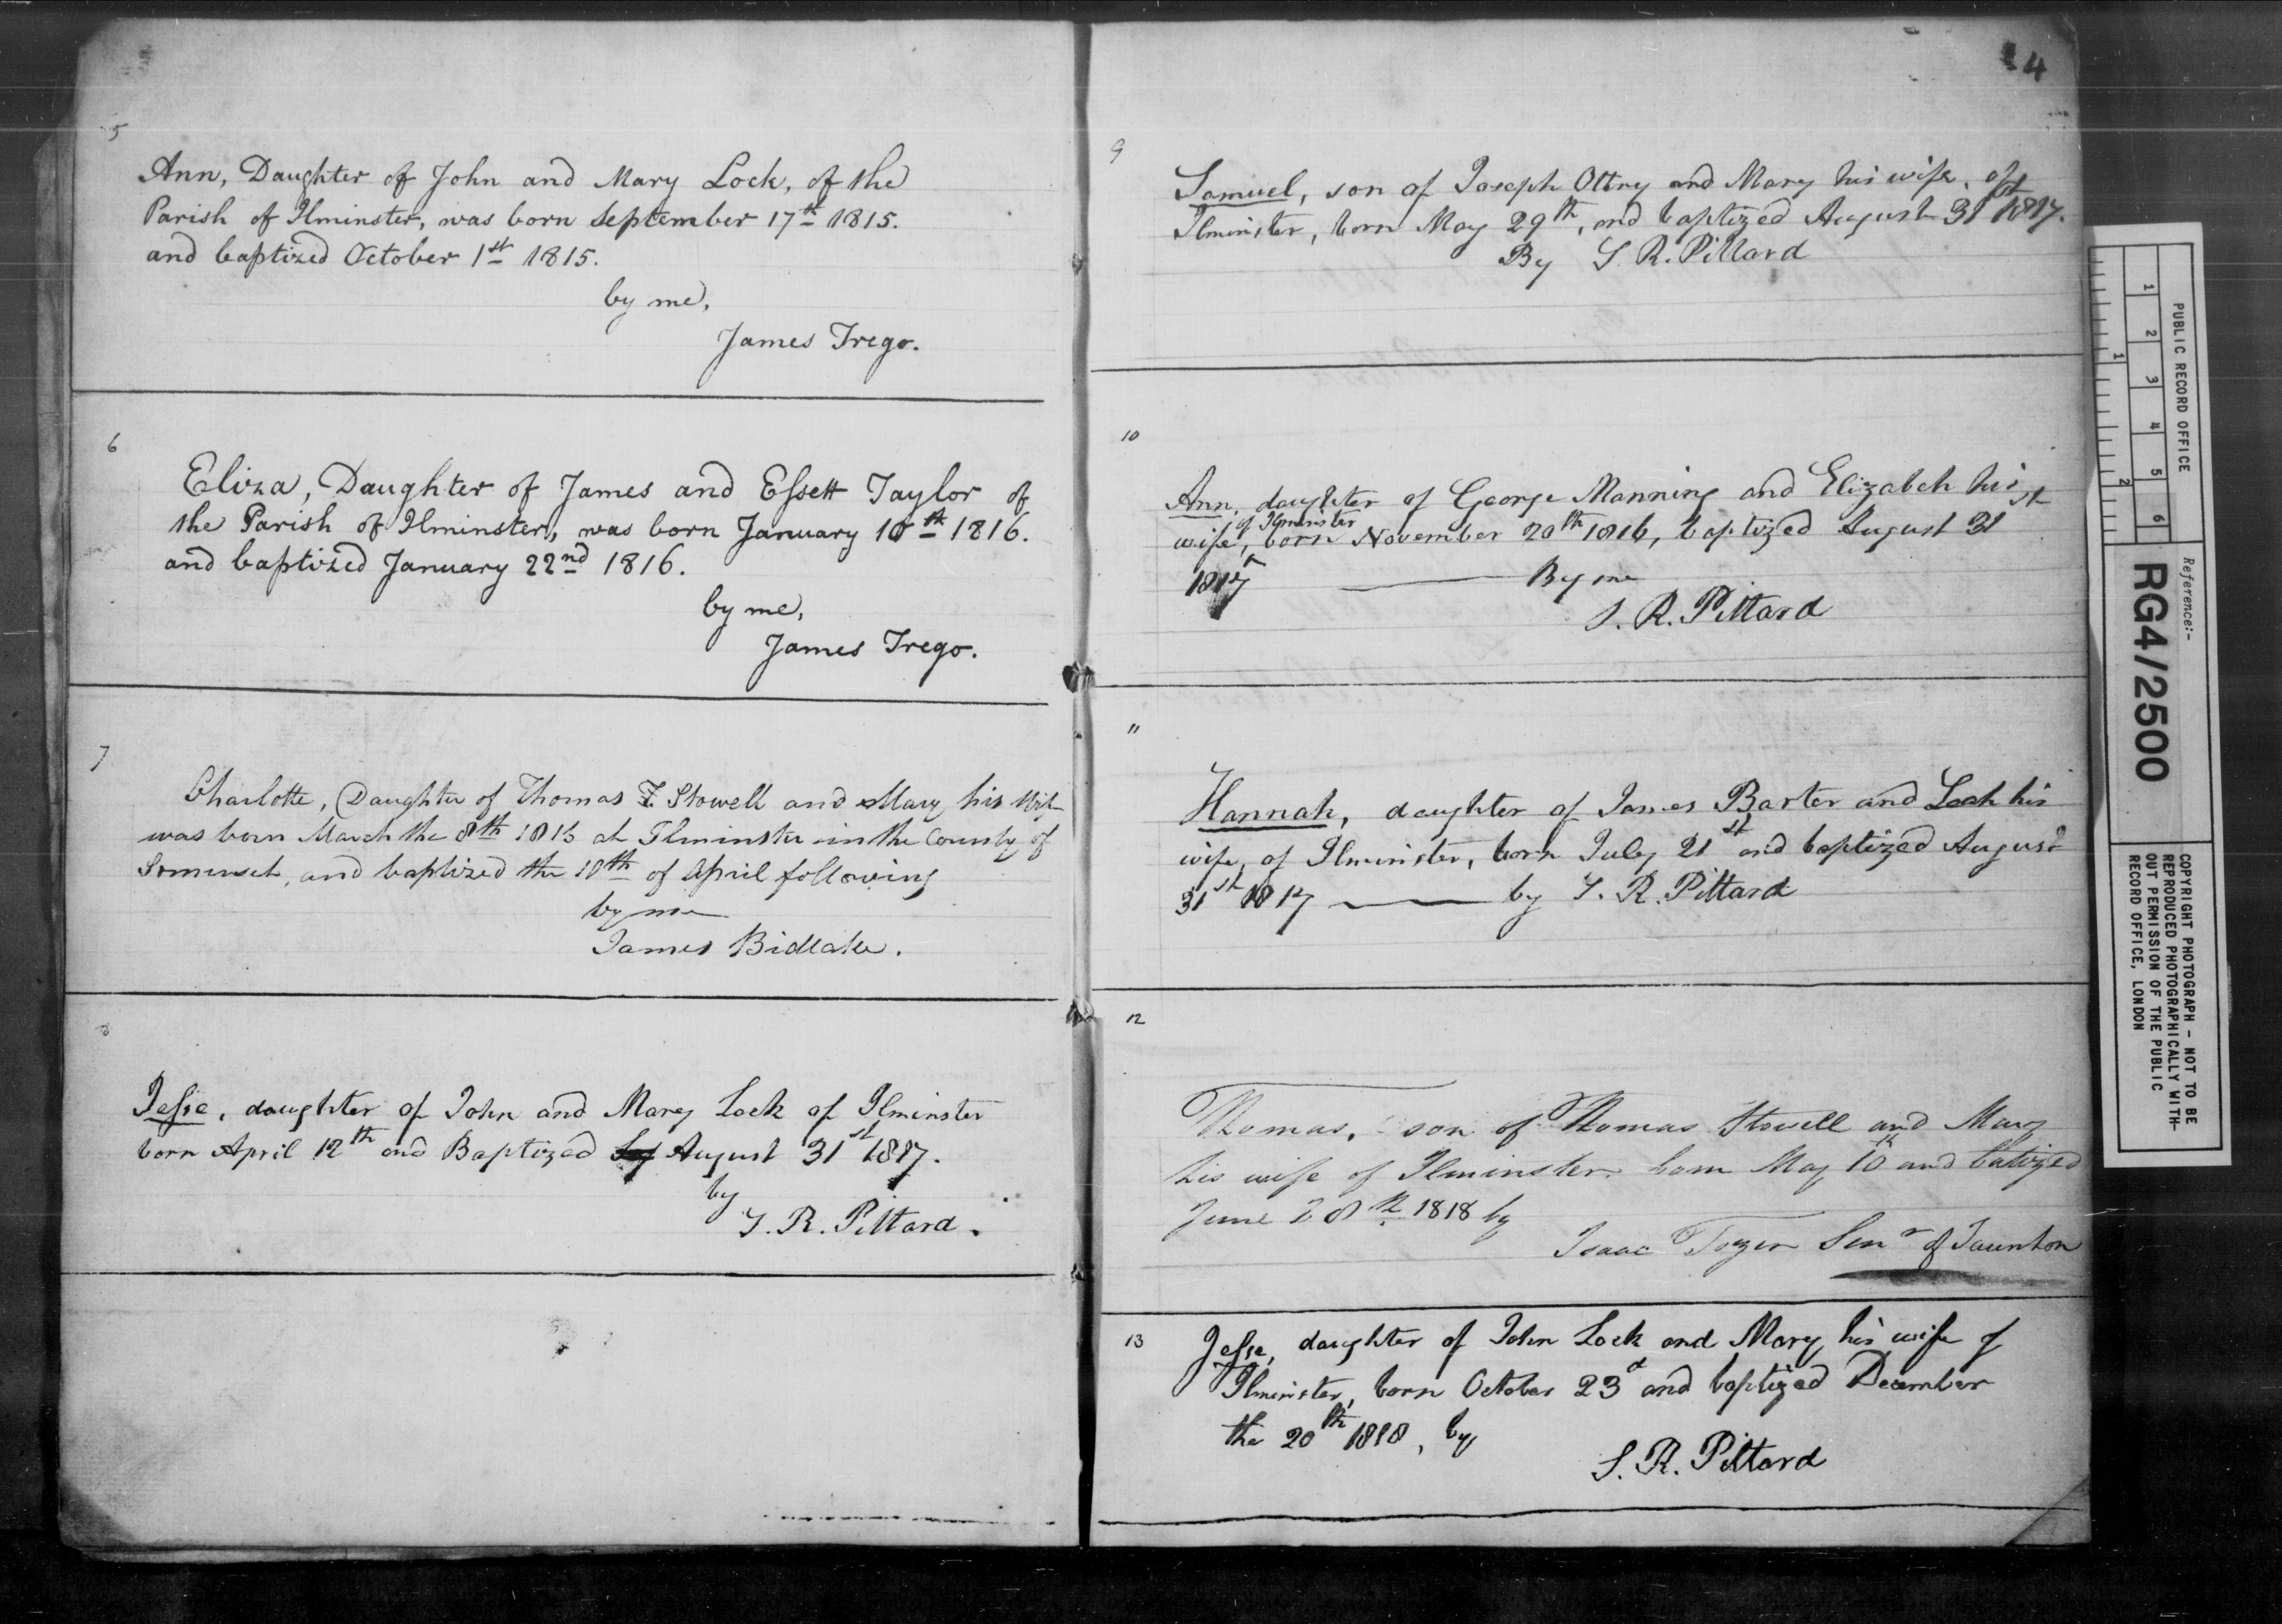 5
Ann, Daughter of John and Mary Lock, of the
Parish of Ilminster, was born September 17th 1815.
and baptized October 1st 1815.
by me,
James Trego.
6
Eliza, Daughter of James and Essett Taylor of
the Parish of Ilminster, was born January 10th 1816.
and baptized January 22nd 1816.
by me,
James Trego.
7
Charlotte, Daughter of Thomas Stowell and Mary his Wife
was born March the 8th at Ilminster in the County of
Somerset, and baptized the 10th of April following
by me
James Bidlake.
8
Jesse, daughter of John and Mary Lock of Ilminster
born April 12th and Baptized August 31st 1817.
by
S. R. Pittard.
4
9
Samuel, son of Joseph Ottry and Mary his wife, of
Ilminster, born May 29th, and baptized August 31st 1817.
By S. R. Pittard
10
Ann, daughter of George Manning and Elizabeh his
of Ilminster
wife, born November 20th 1816, baptized August 31st
1817 By me
S. R. Pittard
11
Hannah, daughter of James Barter and Leah his
wife, of Ilminster, born July 21st and baptized August
31st 1817 by S. R. Pittard
12
Thomas, son of Thomas Stowell and Mary
his wife of Ilminster born May 10th and batized
June 28th 1818 by
Isaac Tozer Senr of Taunton
13
Jesse, daughter of John Lock and Mary his wife of
Ilminster, born October 23d and baptized December
the 20th 1818, by
S. R. Pittard
PUBLIC RECORD OFFICE
1 2 3 4 5 6
1 2
Reference:-
RG4/2500
COPYRIGHT PHOTOGRAPH - NOT TO BE
REPRODUCED PHOTOGRAPHICALLY WITH-
OUT PERMISSION OF THE PUBLIC
RECORD OFFICE, LONDON